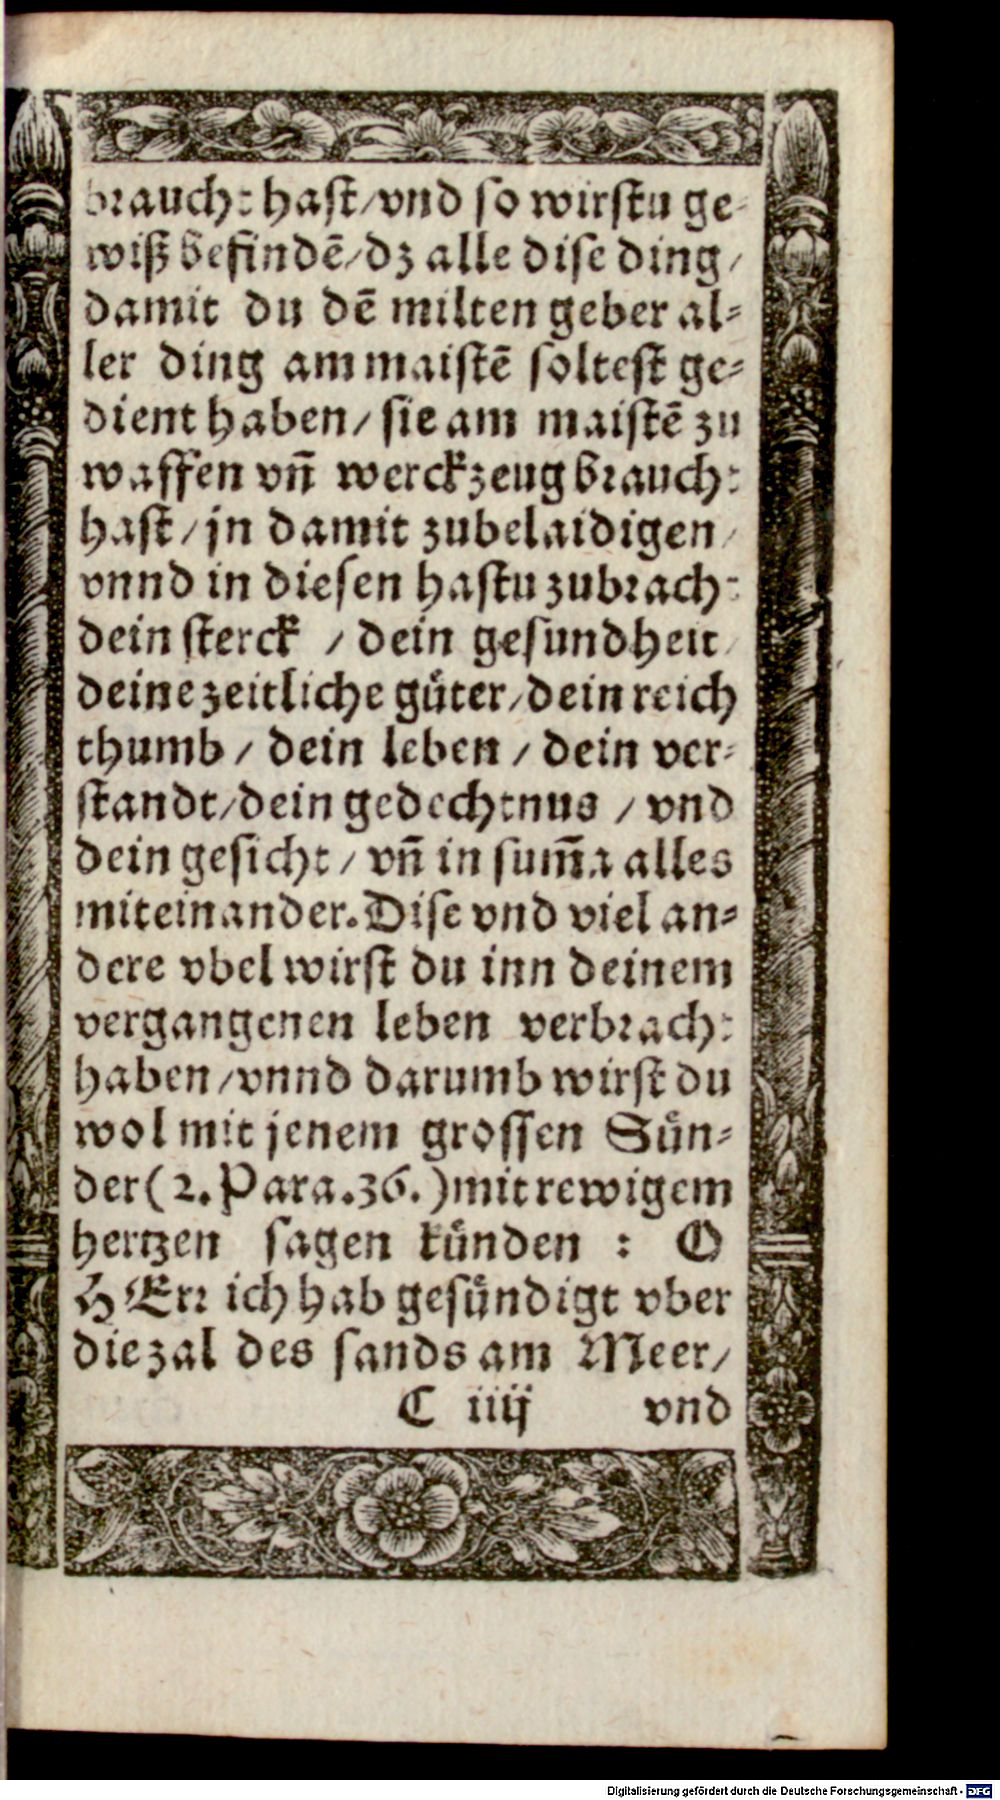 braucht hast/vnd so wirstu ge-
wiß befindē/dz alle dise ding/
damit du dē milten geber al-
ler ding am maistē soltest ge-
dient haben/sie am maistē zu
waffen vñ werckzeug braucht
hast/jn damit zubelaidigen/
vnnd in diesen hastu zubracht
dein sterck / dein gesundheit/
deine zeitliche gůter/dein reich
thumb / dein leben / dein ver-
standt/dein gedechtnus / vnd
dein gesicht/ vñ in sum̃a alles
miteinander. Dise vnd viel an-
dere vbel wirst du inn deinem
vergangenen leben verbracht
haben/vnnd darumb wirst du
wol mit jenem grossen Sün-
der (2. Para. 36.) mit rewigem
hertzen sagen künden : O
HErr ich hab gesündigt vber
die zal des sands am Meer/
C iiij vnd
Digitalisierung gefördert durch die Deutsche Forschungsgemeinschaft - DFG